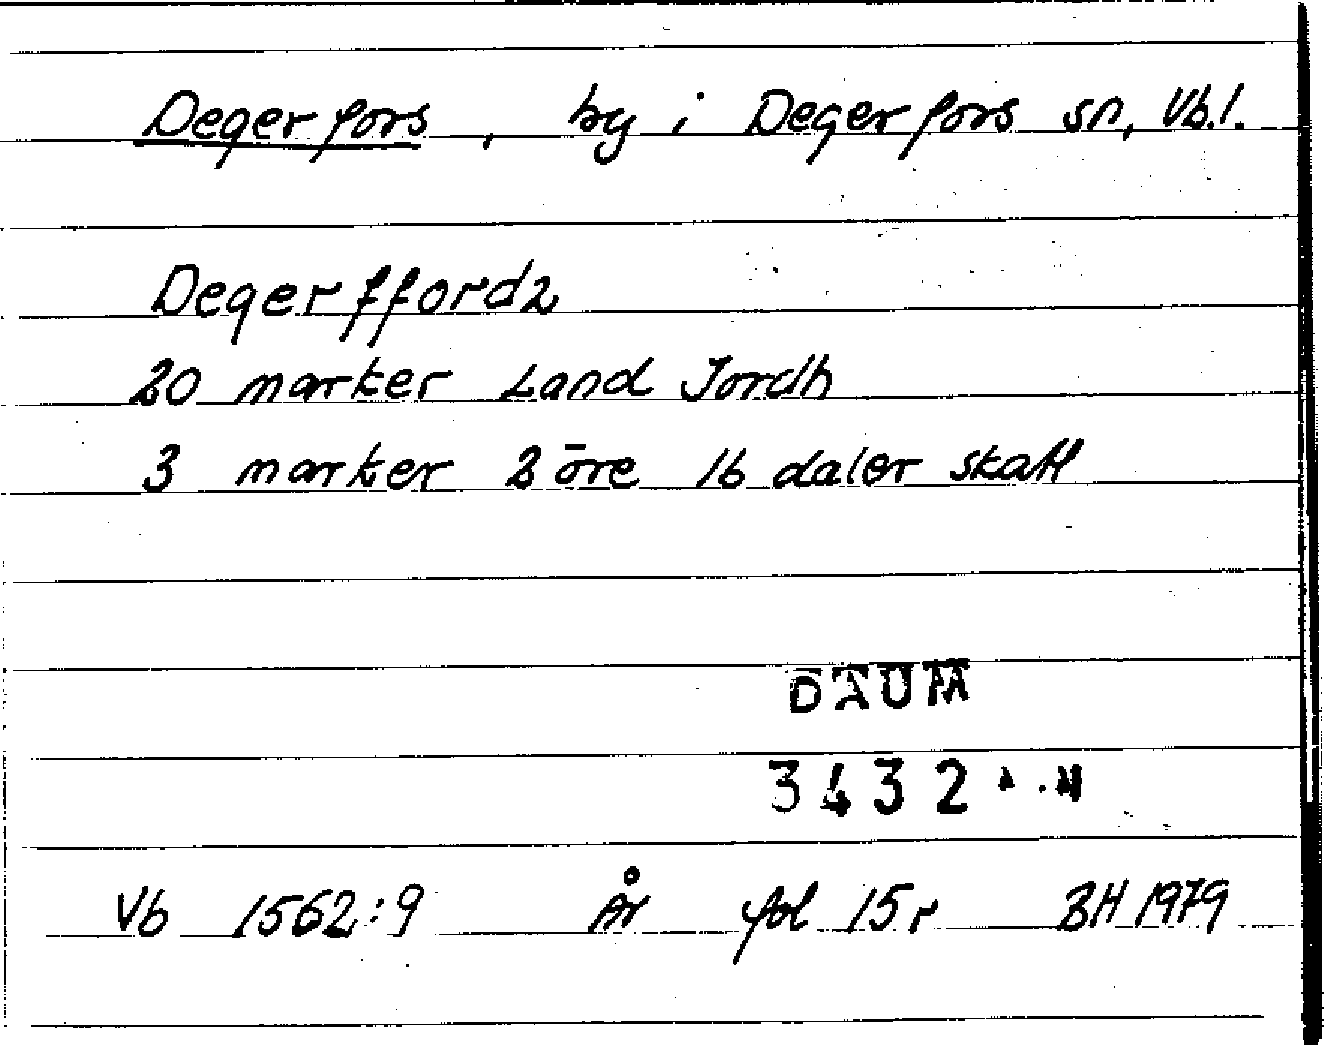 Degerfors, by i Degerfors sn, Vb.l.
Degerffordz
20 marker Land Jordh
3 marker 2 öre 16 daler skatt
DAUM
3432
Vb 1562:9 År fol 15r BH 1979